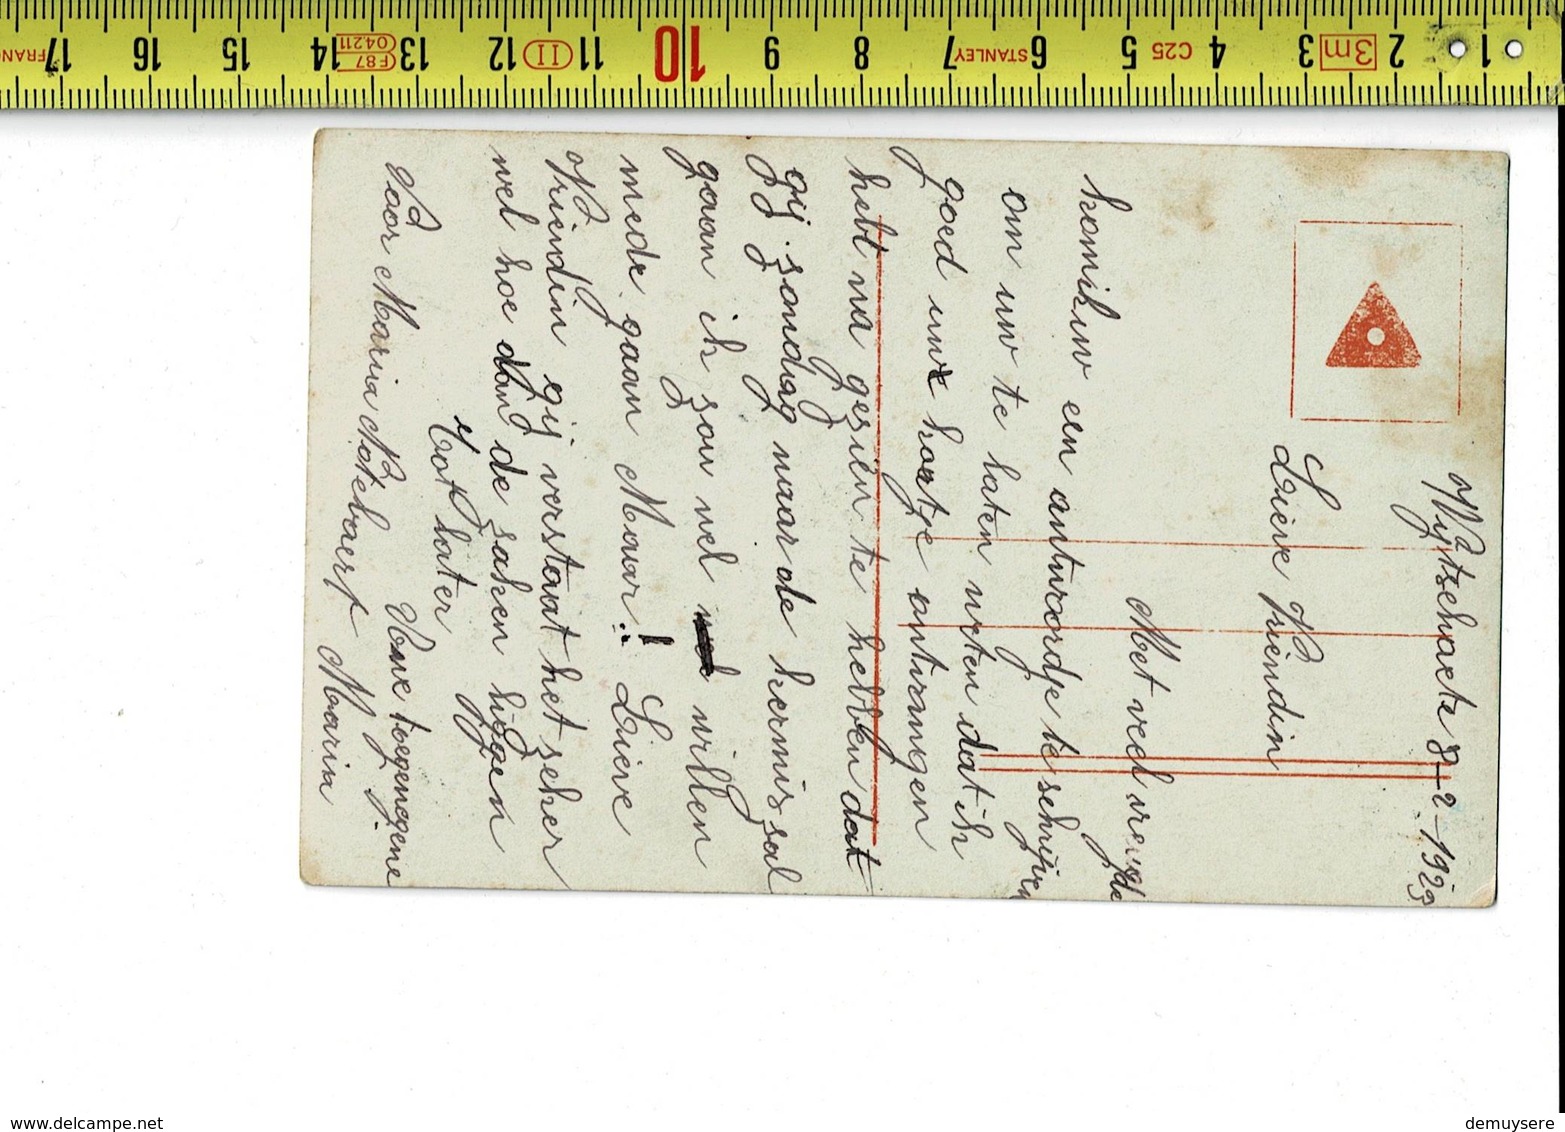 Wijtschaete 8-2-1923
Lieve Vriendin
Met veel vreugde
kom ik uw een antwoordje te schrijven
om uw te laten weten dat ik
goed uwe kaatje ontvangen
hebt na gezien te hebben dat
gij zondag naar de kermis zal
gaan ik zou wel willen
mede gaan Maar..! Lieve
Vriendin gij verstaat het zeker
wel hoe dan de zaken liggen
Tot later
Uwe toegenogene
Voor Maria Notebaert Maria
FRANC 17 16 15 14 F87 04.211 13 12 II 11 10 9 8 STANLEY 7 6 5 C25 4 3 3m 2 1
www.delcampe.net
demuysere